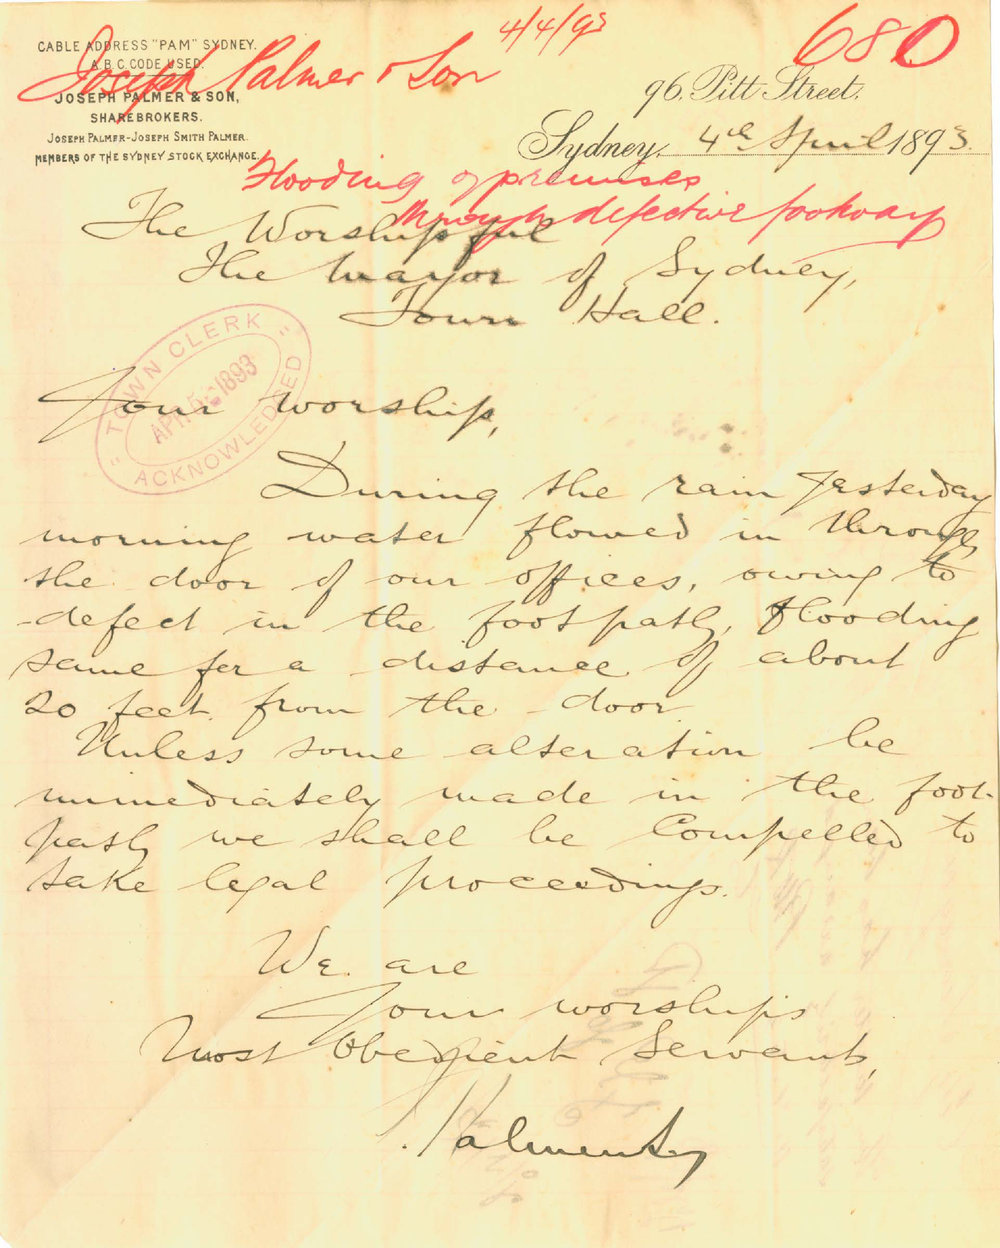 4/4/93
680
CABLE ADDRESS "PAM" SYDNEY.
A.B.C. CODE USED.
Joseph Palmer & Son
JOSEPH PALMER & SON,
SHAREBROKERS.
JOSEPH PALMER-JOSEPH SMITH PALMER.
MEMBERS OF THE SYDNEY STOCK EXCHANGE.
96. Pitt Street.
Sydney, 4th April 1893.
Flooding of premises
through defective footway
The Worshipful
The Mayor of Sydney,
Town Hall.
"TOWN CLERK"
APR 5 1893
ACKNOWLEDGED
Your Worship,
During the rain yesterday
morning water flowed in through
the door of our offices, owing to
defect in the footpath, flooding
same for a distance of about
20 feet from the door.
Unless some alteration be
immediately made in the foot-
path we shall be Compelled to
take legal proceedings.
We are
Your worships
Most Obedient Servants,
J. Palmer & Son